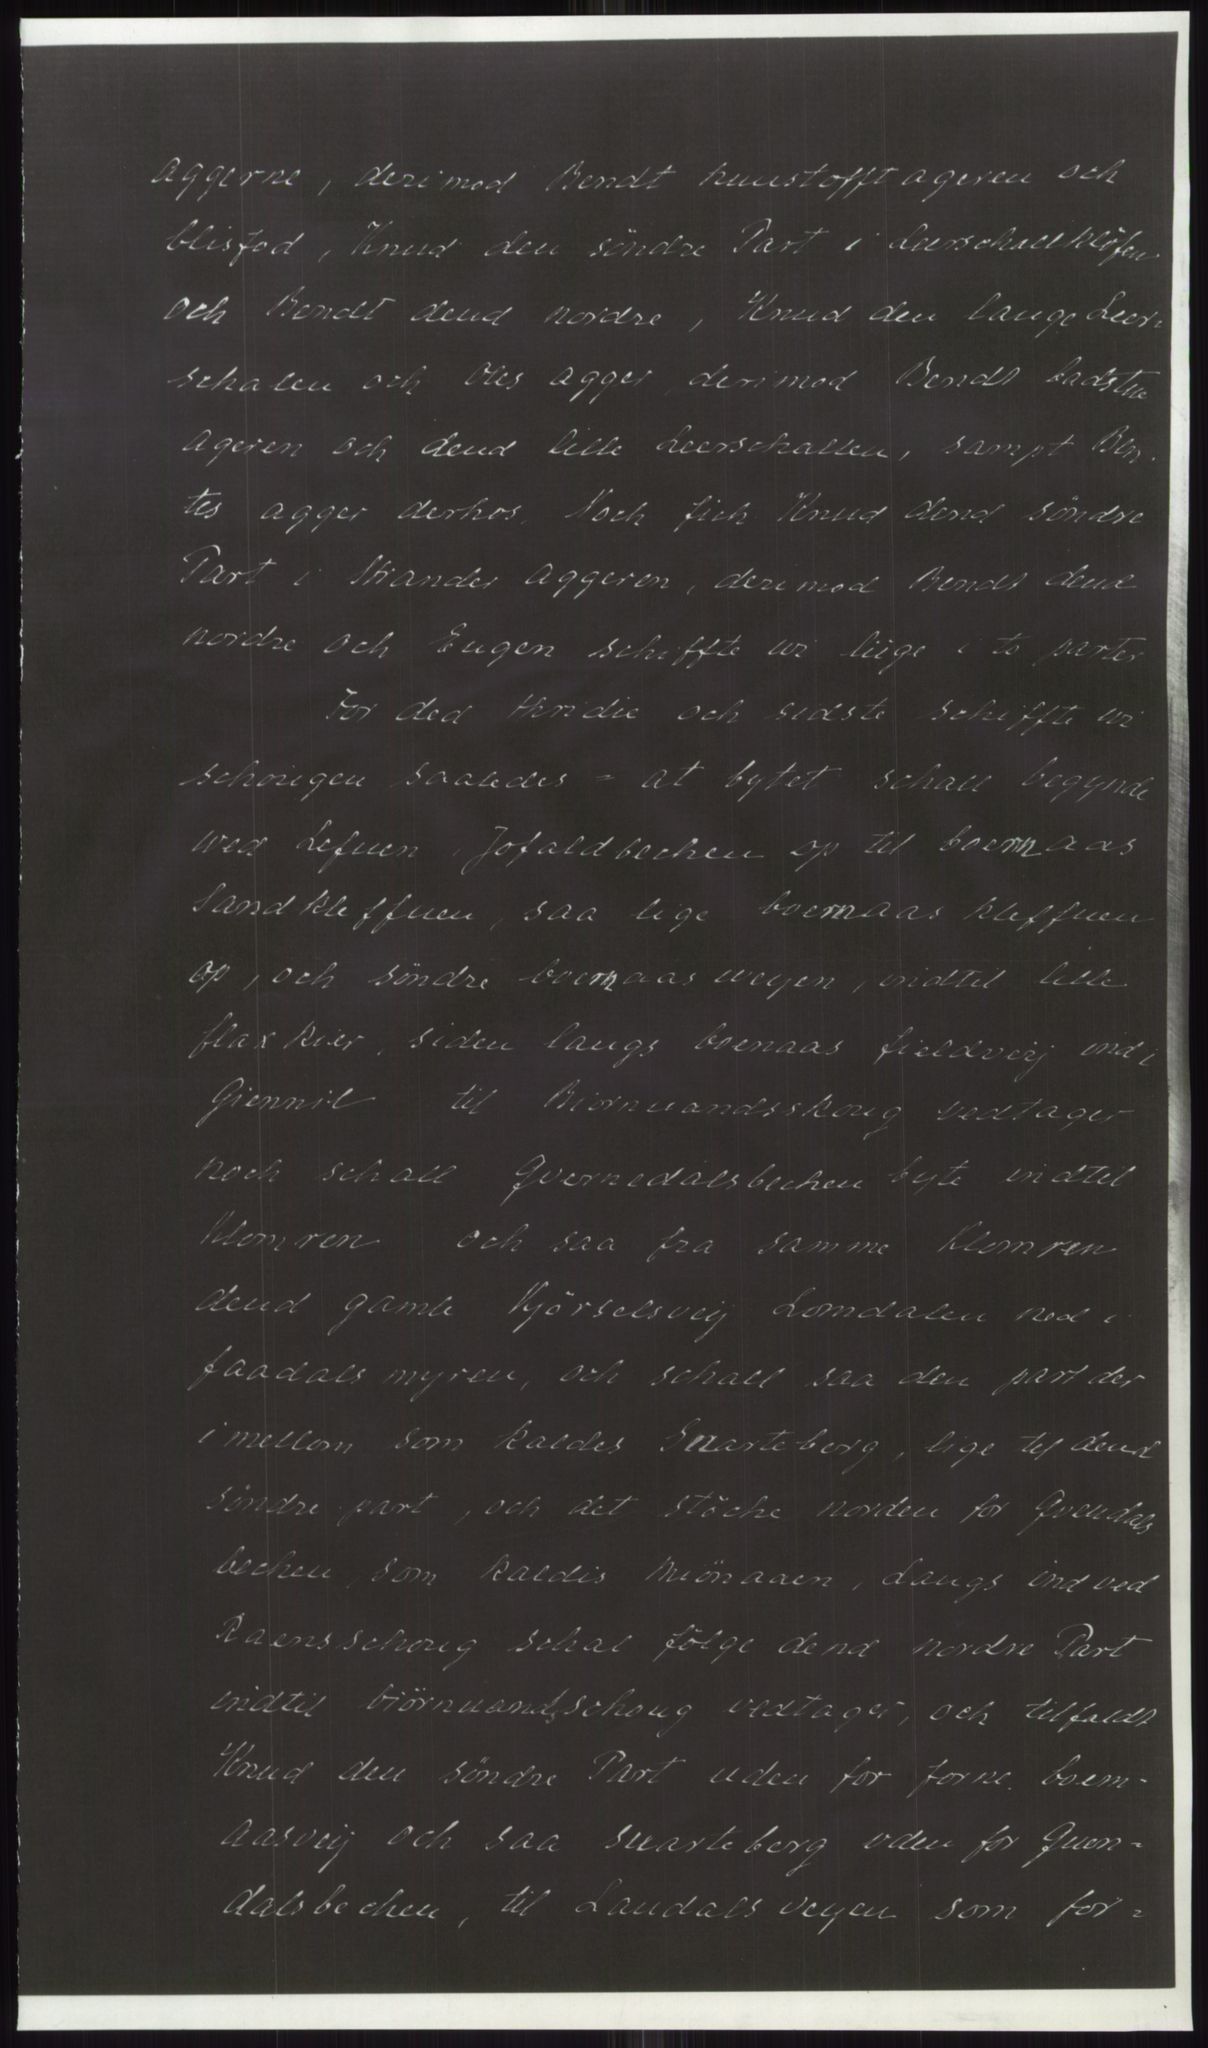 aggerne, derimod Bendt huustofft ageren och
blisfod, Knud den söndre Part i Leerschallklöfen
och Bendt dend nordre, Knud den lange Leer-
schalen och Oles agger derimod Bendt badstue
ageren och dend lille Leerschallen, sampt Ben-
tes agger derhos. Noch fich Knud dend söndre
Part i Strandes aggeren, derimod Bendt dend
nordre och Engen schiffte wi liige i to parter
For ded thridie och sidste schiffte wi
schougen saaledes - at bytet schall begynde
wed Lefuen Jofaldbechen op til boemaas
Sandkleffuen, saa lige boemaas kleffuen
op, och söndre boemaas weyen, indtil lille
flaxkier, siden langs boenaas fieldveij ind i
Giennil til Biornuandsskoug vedtager
noch schall Quernedalsbechen byte indtil
Klomren och saa fra samme Klomren
dend gamle Kjörselsveij Lomdalen ned i
faadals myren, och schall saa den part der
imellom som kaldes Suarteberg, lige til dend
söndre part, och det stöche norden for Quendals
bechen, som kaldis Miönaaen, Langs ind ved
Raensschoug schal fölge dend nordre Part
indtil biörnuandsschoug vedtager, och tilfaldt
Knud den söndre Part uden for forne. boem-
aasveij och saa suarteberg uden for Quen-
dalsbechen, til Laudals veyen som for-